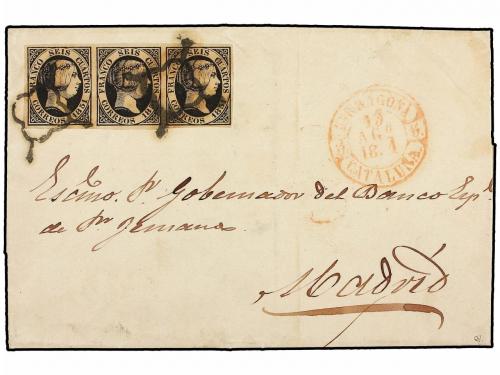 FRANCO SEIS CUARTOS FRANCO SEIS CUARTOS FRANCO SEIS CUARTOS
CORREOS 1851 CORREOS 1851 CORREOS 1851
TARRAGONA
13
AGO
CATALUÑA
Escmo. Sr. Gobernador del Banco Esp.l
de Sn
Madrid